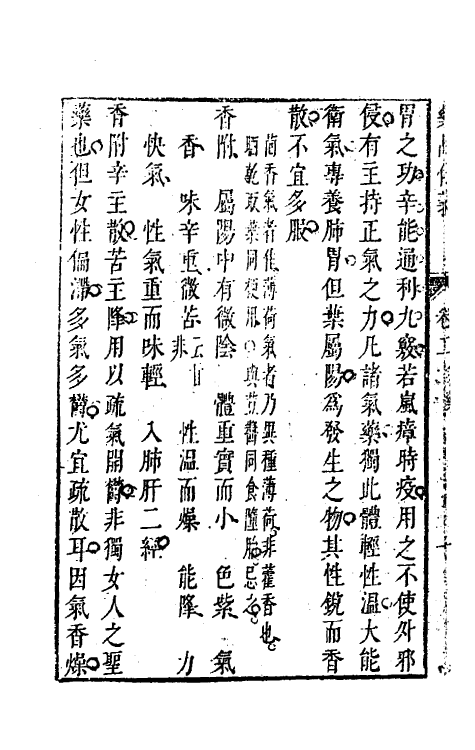 胃之功辛能通利九竅若嵐瘴時疫用之不使外邪
侵有主持正氣之力凡諸氣藥獨此體輕性溫大能
衛氣專養肺胃但葉屬陽為發生之物其性銳而香
散不宜多服
茴香氣者佳薄荷氣者乃異種薄荷非藿香也
晒乾取葉同梗用與荳蔻同食墮胎忌之
香附　屬陽中有微陰　體重實而小　色紫　氣
香　味辛重微苦云甘非　性溫而燥　能降　力
快氣　性氣重而味輕　入肺肝二經
香附辛主散苦主降用以疏氣開鬱非獨女人之聖
藥也但女性偏滯多氣多鬱尤宜疏散耳因氣香燥